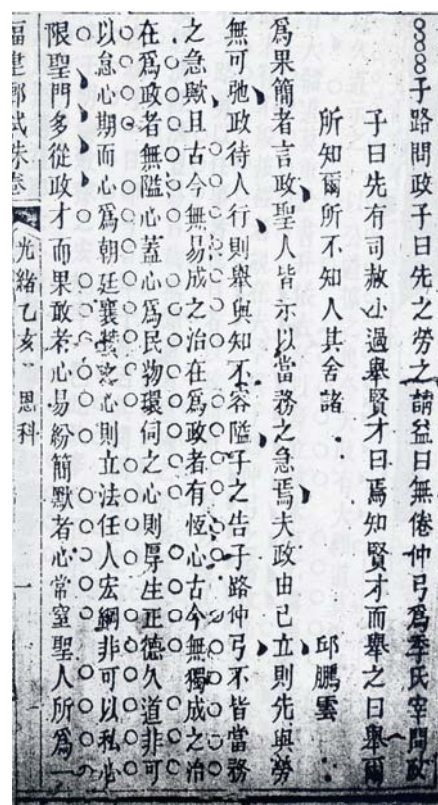 子路問政子曰先之勞之請益曰無倦仲弓爲季氏宰問政
子曰先有司赦小過舉賢才曰焉知賢才而舉之曰舉爾
所知爾所不知人其舍諸
邱鵬雲
爲果簡者言政聖人皆示以當務之急焉夫政由己立則先與勞
無可弛政待人行則舉與知不容隘子之告子路仲弓不皆當務
之急歟且古今無易成之治在爲政者有恆心古今無獨成之治
在爲政者無隘心蓋心爲民物環伺之心則厚生正德久道非可
以怠心期而心爲朝廷襄之心則立法任人宏綱非可以私心
限聖門多從政才而果敢者心易紛簡默者心常窒聖人所爲一
福建鄉試硃卷
光緒乙亥恩科
一